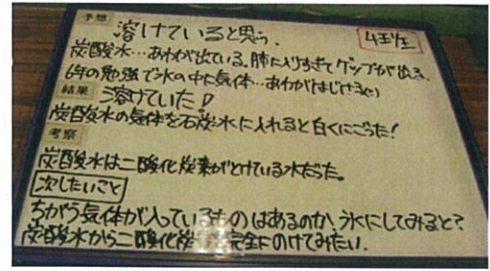 予想
溶けていると思う。
炭酸水…あわが出ている。肺に入りすぎてゲップが出る。
6年の勉強で水の中に気体…あわがはじける
結果 溶けていた!
炭酸水の気体を石炭水に入れると白くにごった!
考察
炭酸水は二酸化炭素がとけている水だった。
次したいこと
ちがう気体が入っているものはあるのか、氷にしてみると?
炭酸水から二酸化炭 完全にのけてみたい.